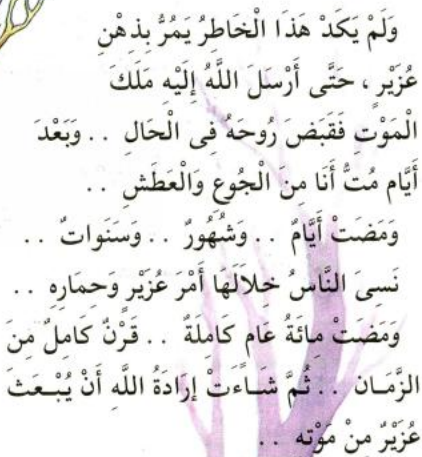 وَلَمْ يَكَدْ هَذَا الْخَاطِرُ يَمُرُّ بِذِهْنِ
عُزَيْرٍ ، حَتَّى أَرْسَلَ اللَّهُ إِلَيْهِ مَلَكَ
الْمَوْتِ فَقَبَضَ رُوحَهُ فِى الْحَالِ .. وَبَعْدَ
أَيَّامٍ مُتُّ أَنَا مِنَ الْجُوعِ وَالْعَطَشِ ..
وَمَضَتْ أَيَّامٌ .. وَشُهُورٌ .. وَسَنَواتٌ ..
نَسِىَ النَّاسُ خِلَالَهَا أَمْرَ عُزَيْرٍ وَحِمَارِهِ ..
وَمَضَتْ مِائَةُ عَامٍ كَامِلَةٌ .. قَرْنٌ كَامِلٌ مِنَ
الزَّمَـانِ .. ثُمَّ شَـاءَتْ إِرَادَةُ اللَّهِ أَنْ يُبْـعَـثَ
عُزَيْرٌ مِنْ مَوْتِهِ ..